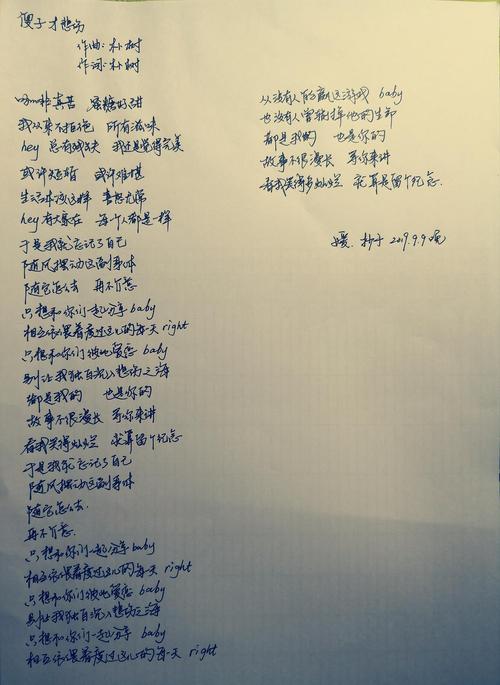 傻子才悲伤
作曲:朴树
作词:朴树
咖啡真苦 蛋糕好甜
我从来不拒绝 所有滋味
hey 总有残缺 我还是觉得完美
或许短暂 或许难堪
生活本该这样 喜怒无常
hey 有太阳在 每个人都是一样
于是我就忘记了自己
随风摆动这副身体
随它怎么去 再不介意
只想和你们一起分享 baby
相互依偎着度过这儿的每天 right
只想和你们彼此爱恋 baby
别让我独自沉入悲伤之海
都是我的 也是你的
故事不很漫长 等你来讲
看我笑得灿烂 就算留个纪念
于是我就忘记了自己
随风摆动这副身体
随它怎么去.
再不介意.
只想和你们一起分享 baby
相互依偎着度过这儿的每天 right
只想和你们彼此爱恋 baby
别让我独自沉入悲伤之海
只想和你们一起分享 baby
相互依偎着度过这儿的每天 right
从没有人能赢这游戏 baby
也没有人曾 掉他的生命
都是我的 也是你的
故事不很漫长 等你来讲
看我笑得多灿烂 就算是留个纪念.
媛. 抄于 2019.9.9 晚